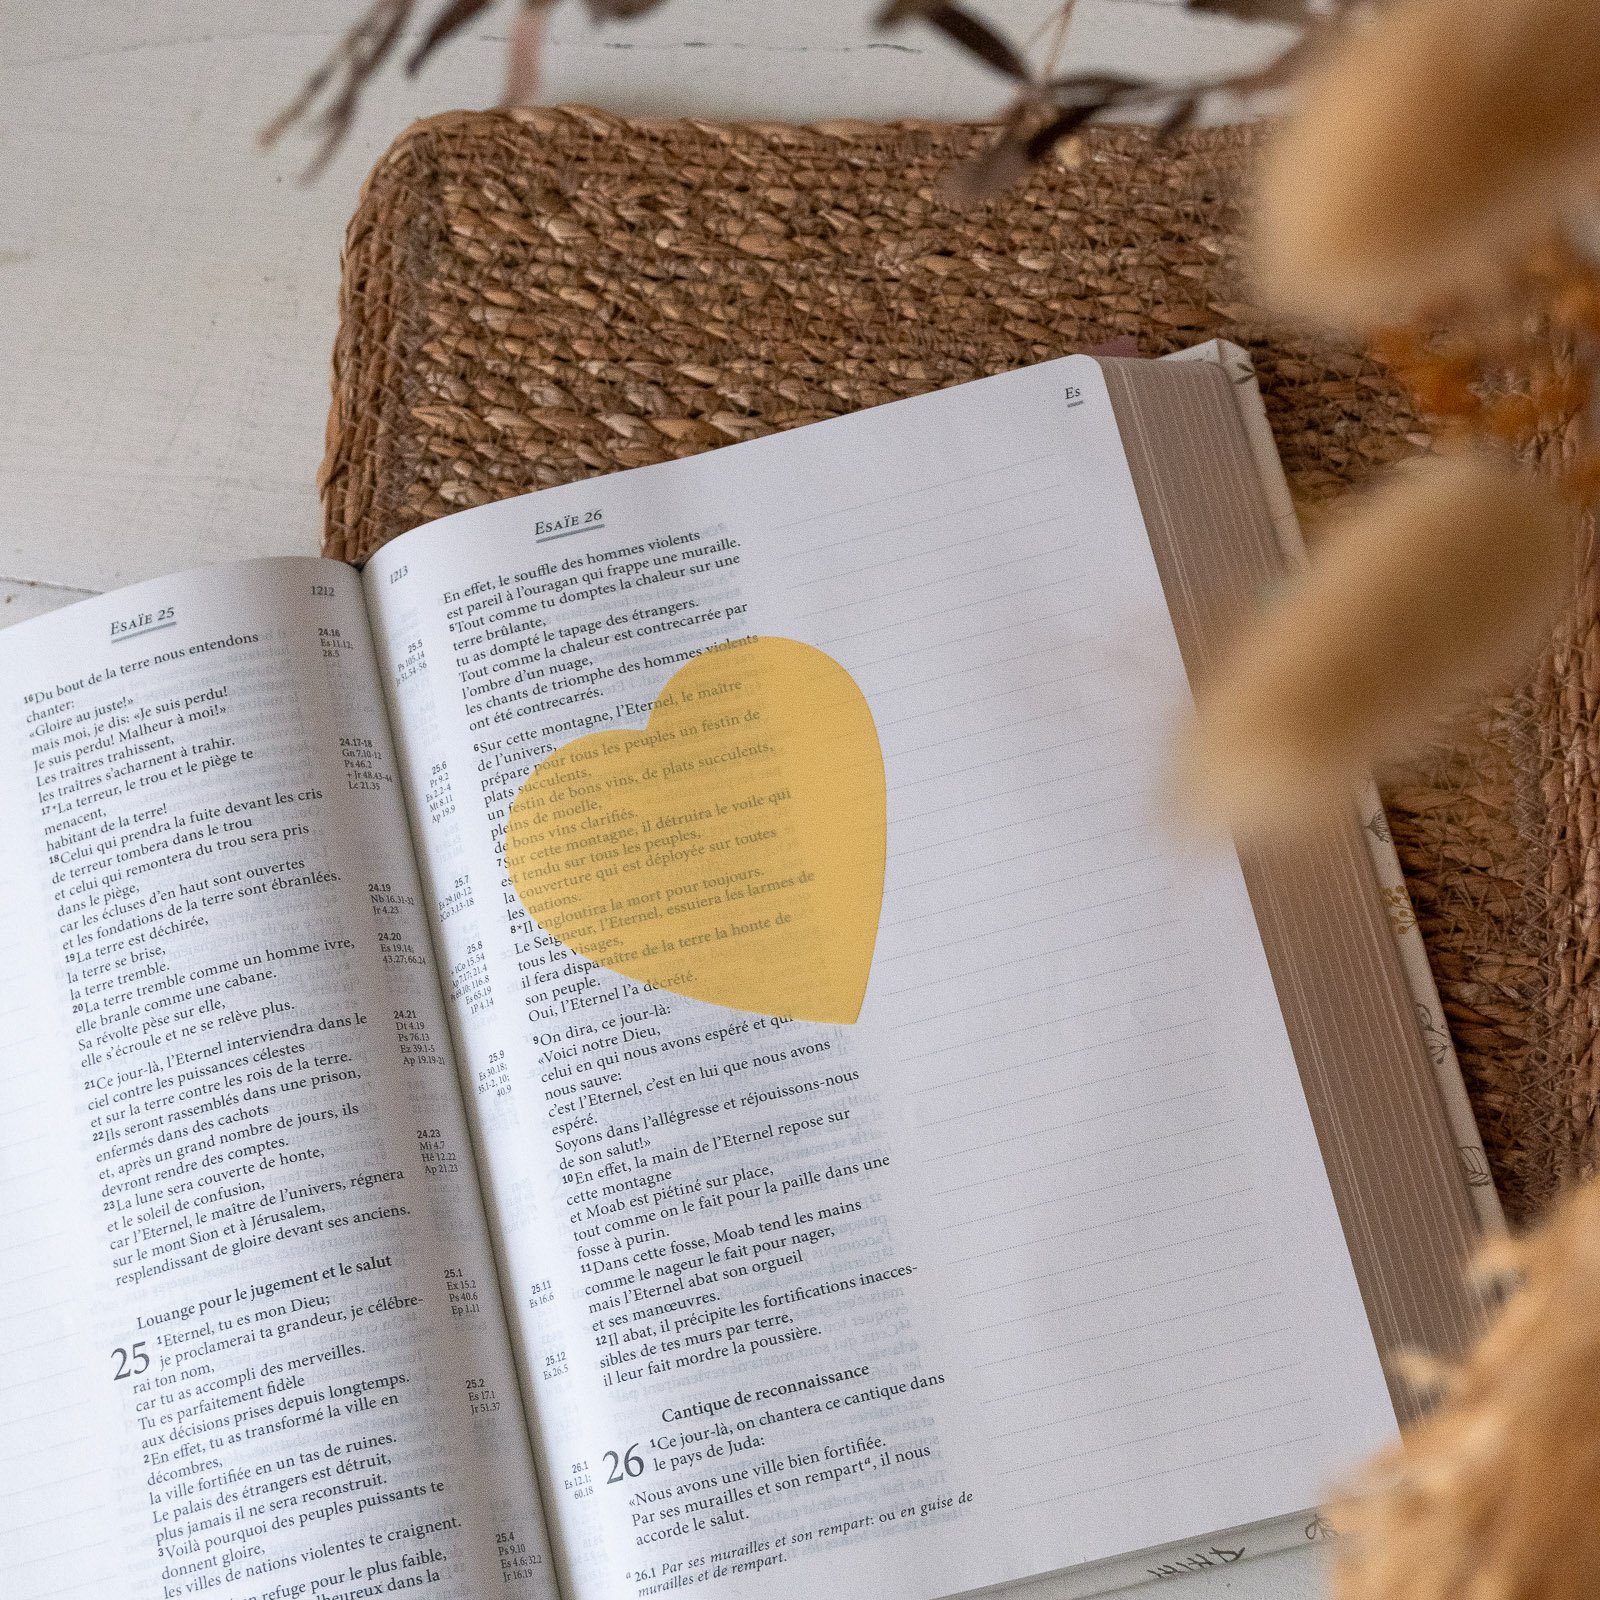 ESAÏE 25
1212
16Du bout de la terre nous entendons
chanter:
«Gloire au juste!»
mais moi, je dis: «Je suis perdu!
Je suis perdu! Malheur à moi!»
Les traîtres trahissent,
les traîtres s'acharnent à trahir.
17*La terreur, le trou et le piège te
menacent,
habitant de la terre!
18Celui qui prendra la fuite devant les cris
de terreur tombera dans le trou
et celui qui remontera du trou sera pris
dans le piège,
car les écluses d'en haut sont ouvertes
et les fondations de la terre sont ébranlées.
19La terre est déchirée,
la terre se brise,
la terre tremble.
20La terre tremble comme un homme ivre,
elle branle comme une cabane.
Sa révolte pèse sur elle,
elle s'écroule et ne se relève plus.
21Ce jour-là, l'Eternel interviendra dans le
ciel contre les puissances célestes
et sur la terre contre les rois de la terre.
22Ils seront rassemblés dans une prison,
enfermés dans des cachots
et, après un grand nombre de jours, ils
devront rendre des comptes.
23La lune sera couverte de honte,
et le soleil de confusion,
car l'Eternel, le maître de l'univers, régnera
sur le mont Sion et à Jérusalem,
resplendissant de gloire devant ses anciens.
Louange pour le jugement et le salut
25 1Eternel, tu es mon Dieu;
je proclamerai ta grandeur, je célébre-
rai ton nom,
car tu as accompli des merveilles.
Tu es parfaitement fidèle
aux décisions prises depuis longtemps.
2En effet, tu as transformé la ville en
décombres,
la ville fortifiée en un tas de ruines.
Le palais des étrangers est détruit,
plus jamais il ne sera reconstruit.
3Voilà pourquoi des peuples puissants te
donnent gloire,
les villes de nations violentes te craignent.
refuge pour le plus faible,
dans la
24.16
Es 11.12;
28.5
24.17-18
Gn 7.10-12
Ps 46.2
+ Jr 48.43-44
Lc 21.35
24.19
Nb 16.31-32
Jr 4.23
24.20
Es 19.14;
43.27; 66.24
24.21
Dt 4.19
Ps 76.13
Ez 39.1-5
Ap 19.19-21
24.23
Mi 4.7
Hé 12.22
Ap 21.23
25.1
Ex 15.2
Ps 40.6
Ep 1.11
25.2
Es 17.1
Jr 51.37
25.4
Ps 9.10
Es 4.6; 32.2
Jr 16.19
1213
ESAÏE 26
Es
En effet, le souffle des hommes violents
est pareil à l'ouragan qui frappe une muraille.
5Tout comme tu domptes la chaleur sur une
terre brûlante,
tu as dompté le tapage des étrangers.
Tout comme la chaleur est contrecarrée par
l'ombre d'un nuage,
les chants de triomphe des hommes violents
ont été contrecarrés.
6Sur cette montagne, l'Eternel, le maître
de l'univers,
prépare pour tous les peuples un festin de
plats succulents,
un festin de bons vins, de plats succulents,
pleins de moelle,
de bons vins clarifiés.
7Sur cette montagne, il détruira le voile qui
est tendu sur tous les peuples,
la couverture qui est déployée sur toutes
les nations.
8*Il engloutira la mort pour toujours.
Le Seigneur, l'Eternel, essuiera les larmes de
tous les visages,
il fera disparaître de la terre la honte de
son peuple.
Oui, l'Eternel l'a décrété.
9On dira, ce jour-là:
«Voici notre Dieu,
celui en qui nous avons espéré et qui
nous sauve:
c'est l'Eternel, c'est en lui que nous avons
espéré.
Soyons dans l'allégresse et réjouissons-nous
de son salut!»
10En effet, la main de l'Eternel repose sur
cette montagne
et Moab est piétiné sur place,
tout comme on le fait pour la paille dans une
fosse à purin.
11Dans cette fosse, Moab tend les mains
comme le nageur le fait pour nager,
mais l'Eternel abat son orgueil
et ses manœuvres.
12Il abat, il précipite les fortifications inacces-
sibles de tes murs par terre,
il leur fait mordre la poussière.
Cantique de reconnaissance
26 1Ce jour-là, on chantera ce cantique dans
le pays de Juda:
«Nous avons une ville bien fortifiée.
Par ses murailles et son rempartª, il nous
accorde le salut.
ª 26.1 Par ses murailles et son rempart: ou en guise de
murailles et de rempart.
25.5
Ps 105.14
Jr 51.54-56
25.6
Pr 9.2
Es 2.2-4
Mt 8.11
Ap 19.9
25.7
Es 29.10-12
2Co 3.13-18
25.8
1Co 15.54
Ap 7.17; 21.4
Es 65.19
1P 4.14
25.9
Es 30.18;
40.9
25.11
Es 16.6
25.12
Es 26.5
26.1
Es 12.1;
60.18